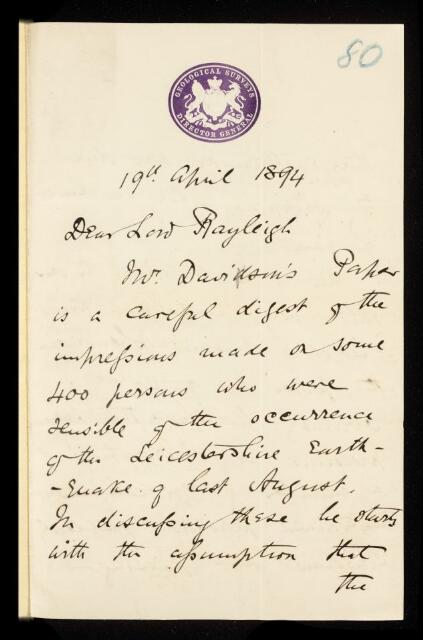 80
GEOLOGICAL SURVEYS
DIRECTOR GENERAL
19th April 1894
Dear Lord Rayleigh
Mr. Davidson's Paper
is a careful digest of the
impressions made on some
400 persons who were
sensible of the occurrence
of the Leicestershire Earth-
-quake of last August.
In discussing these he starts
with the assumption that
the